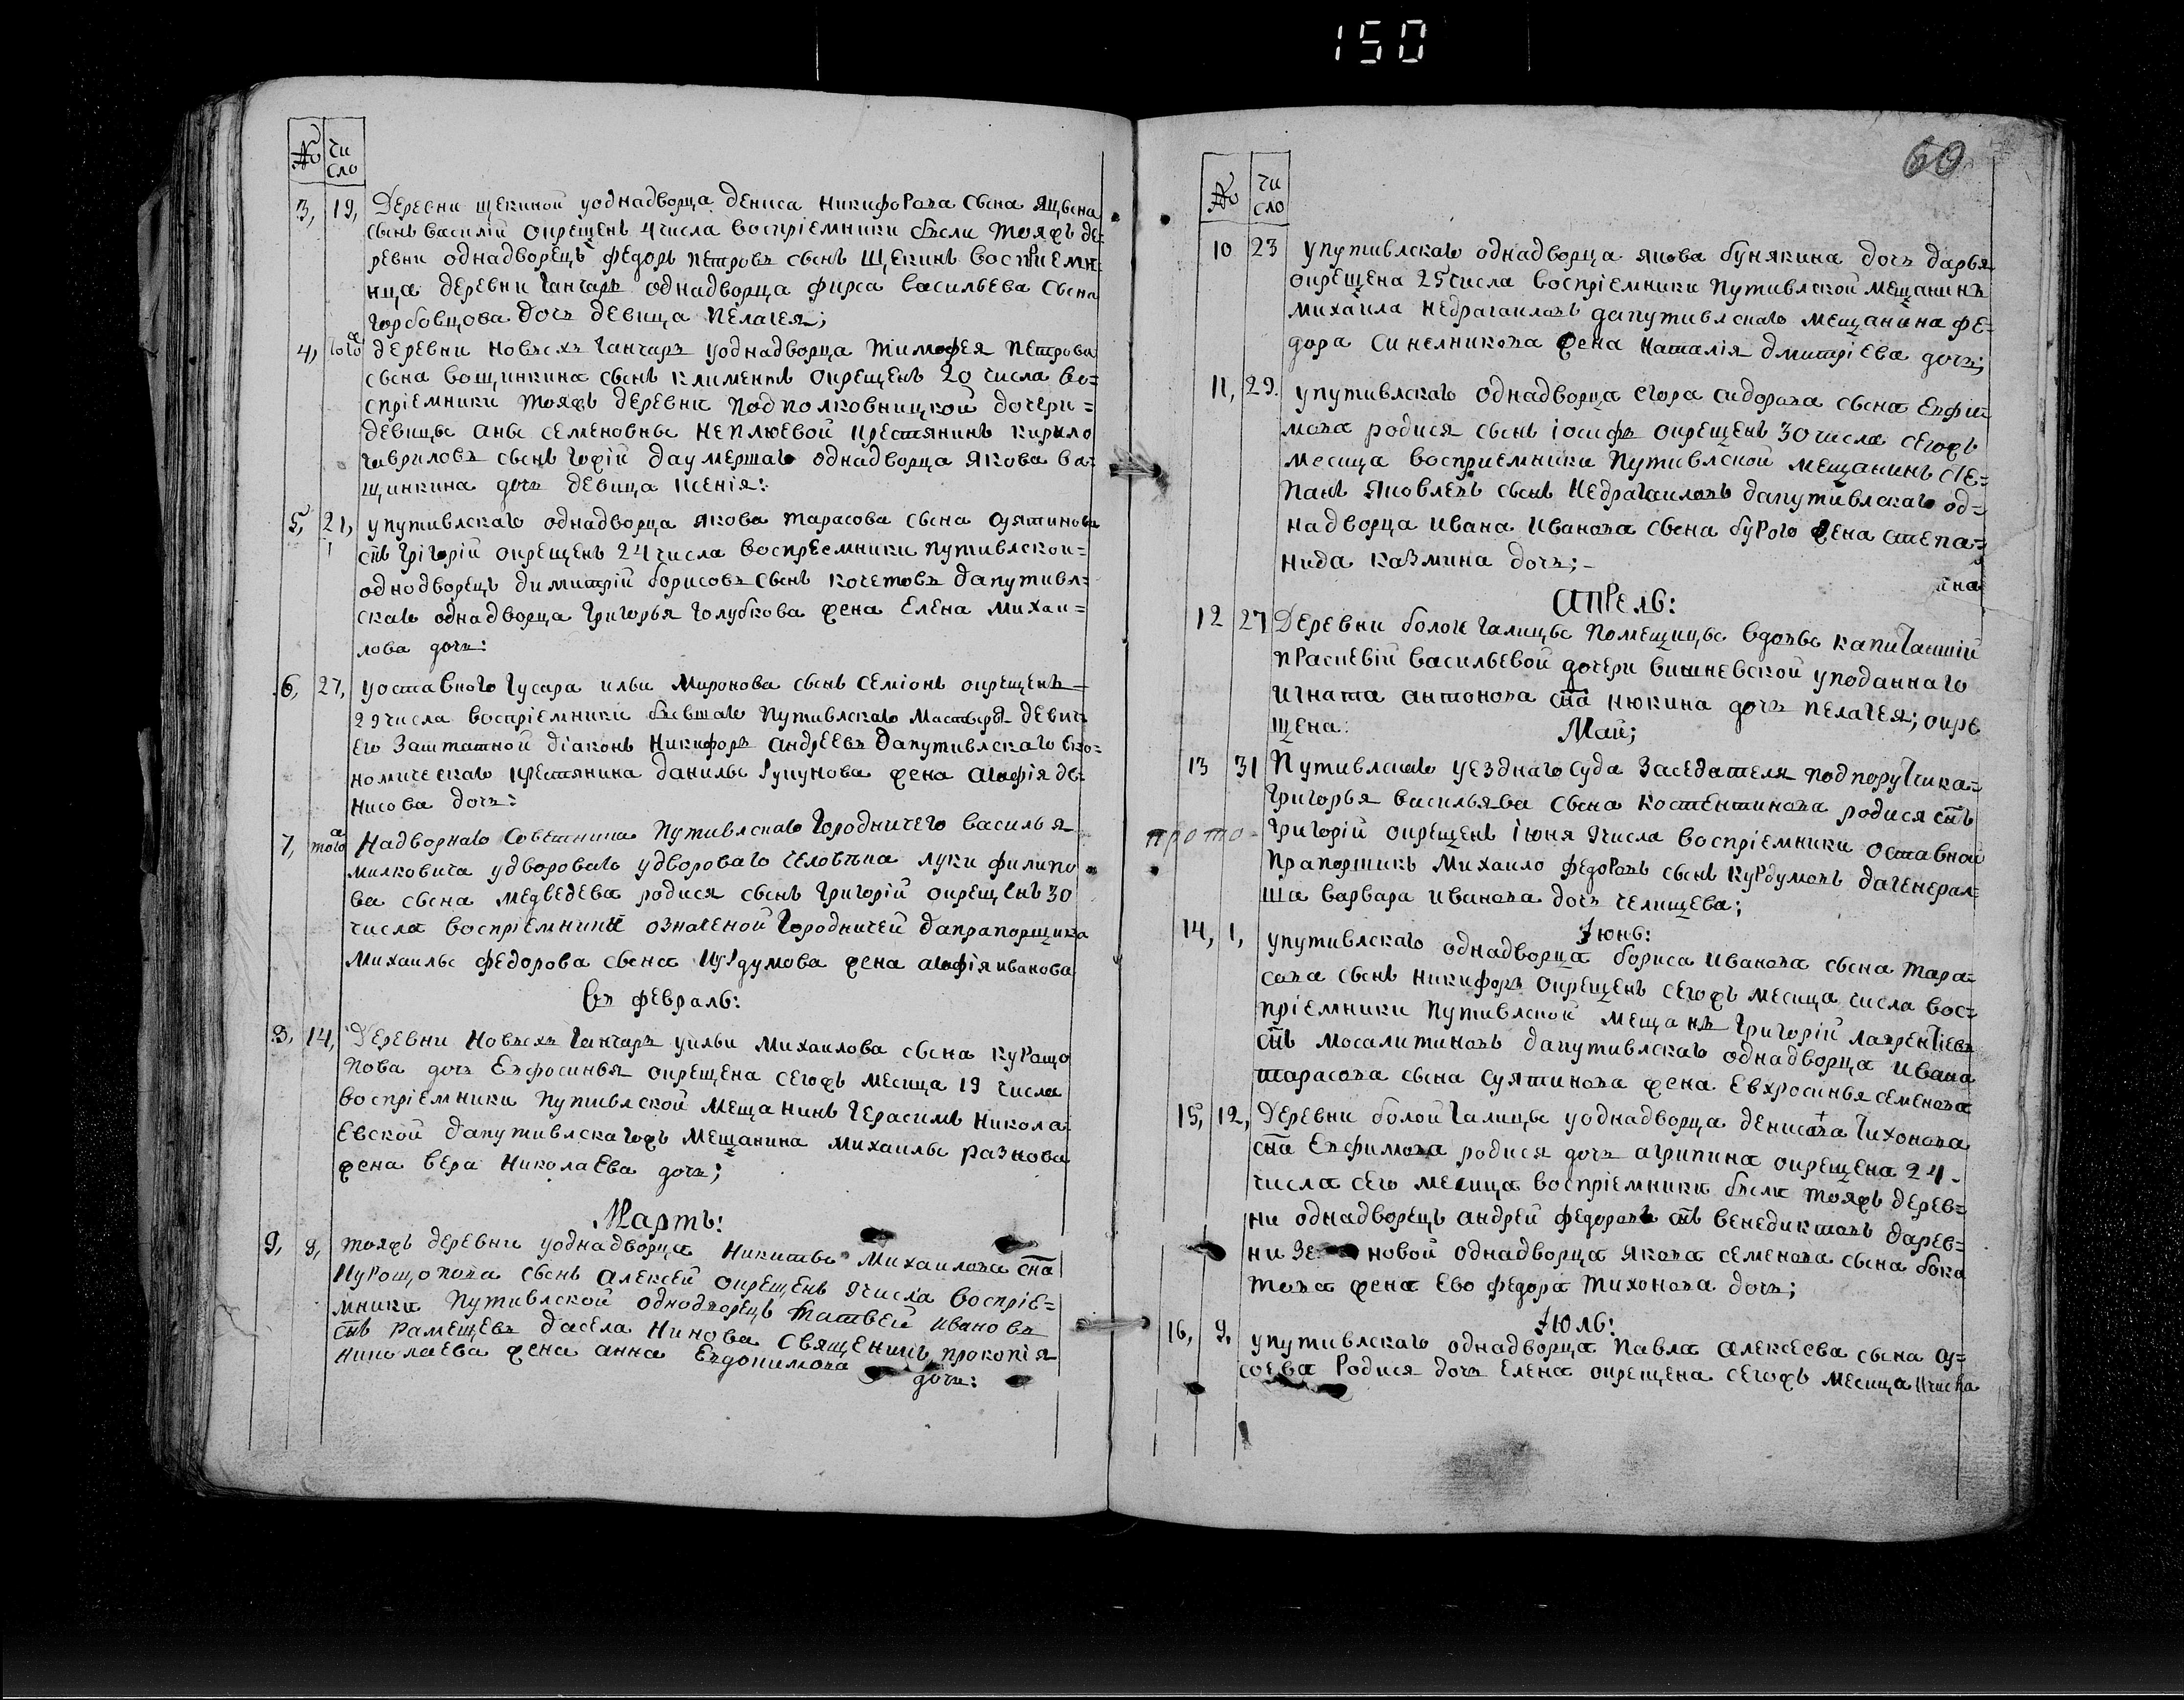 150
№ чи
сло
3, 19, Деревни щекиной уоднадворца Дениса Никифорова сына Яцына
сынъ василiй окрещенъ 4 числа воспрiемники были тояжъ де-
ревни однадворецъ Федоръ петровъ сынъ Щекинъ воспрiемн-
ица деревни ганчаръ однадворца Фирса васильева сына
горбовцова дочъ девица пелагея;
4, того деревни новыхъ ганчаръ уоднадворца тимофея петрова
сына вощинкина сынъ климентъ окрещенъ 20 числа во=
спрiемники тояжъ деревни подполковницкой дочери=
девицы аны семеновны неплюевой крестянинъ кирило
гавриловъ сынъ даумершаго однадворца якова ва-
щинкина дочъ девица ксенiя:
5, 21, упутивлскаго однадворца якова тарасова сына сутинова
снъ григорiй окрещенъ 24 числа воспреемники путивлскои=
однодворецъ димитрiй борисовъ сынъ кочетовъ дапутивл-
скаго однадворца григорья голубкова жена елена михаи=
лова дочъ:
6, 27, уоставного гусара ильи миронова сынъ семiонъ окрещенъ
29 числа воспрiемники бывшаго путивлскаго девич
его заштатной дiаконъ никифоръ андреевъ дапутивлскаго еко-
номическаго крестянина данилы рупунова жена агафiя де-
нисова дочъ:
7, того Надворнаго советника путивлскаго городничего василья
милковича удвороваго удвороваго человека луки филипо
ва сына медведева родися сынъ григорiй окрещенъ 30
числа воспрiемники означеной городничей дапрапорщика
михаилы федорова сына курдумова жена агафiя иванова
въ февраль:
8, 14, Деревни новыхъ ганчаръ уильи михаилова сына курощо
пова дочъ евфосинья окрещена сегожъ месица 19 числа
воспрiемники путивлской мещанинъ герасимъ никола-
евской дапутивлскагожъ мещанина михаилы разнова
жена вера николаева дочъ;
Мартъ:
9, 9, тояжъ деревни уоднадворца никиты михаилова сна
курощопова сынъ алексей окрещенъ 9 числа воспрiе=
мники путивлской однодворецъ матвей ивановъ
снъ рамещевъ дасела нинова священникъ прокопiя
николаева жена анна евдокимова дочъ:
60
№ чи
сло
10 23 упутивлскаго однадворца якова бунякина дочъ дарья
окрещена 25 числа воспрiемники путивлской мещанинъ
михаила недрагаиловъ дапутивлскаго мещанина фе-
дора синелникова жена наталiя дмитрiева дочъ;
11, 29. упутивлскаго однадворца егора сидорова сына евфи-
мова родися сынъ iосифъ окрещенъ 30 числа сегожъ
месица восприемники путивлской мещанинъ сте-
панъ яковлевъ сынъ недрагаиловъ дапутивлскаго од-
надворца ивана иванова сына бурого жена степа-
нида казмина дочъ;-
Апрель:
12 27 Деревни болог галицы помещицы вдовы капитаншiи
прасковiй васильевой дочери вишневской уподаннаго
игната антонова сна нюкина дочъ пелагея; окре
щена:
Май;
13 31 Путивлскаго уезднаго суда заседателя подпорутчика=
григорья васильява сына костентинова родися снъ
григорiй окрещенъ iюня 9 числа воспрiемники оставной
прапорщикъ михаило федоровъ сынъ курдумовъ дагенерал
ша варвара иванова дочъ челищева;
прото-
Iюнь:
14, 1, упутивлскаго однадворца бориса иванова сына тара-
сова сынъ никифоръ окрещенъ сегожъ месица числа вос-
прiемники путивлской мещанъ григорiй лаврентiевъ
снъ мосалитиновъ дапутивлскаго однадворца ивана
тарасова сына сутинова жена евхросинья семенова
15, 12, Деревни болой галицы уоднадворца денисова тихонова
сна евфимова родися дочъ агрипина окрещена 24-
числа сего месица воспрiемники были тояжъ дерев=
ни однадворецъ андрей федоровъ снъ венедиктовъ дарев=
ни новой однадворца якова семенова сына бока
това жена ево федора тихонова дочъ;
Iюль:
16, 9, упутивлскаго однадворца павла алексеева сына су=
соева родися дочъ елена окрещена сегожъ месица 11 числа